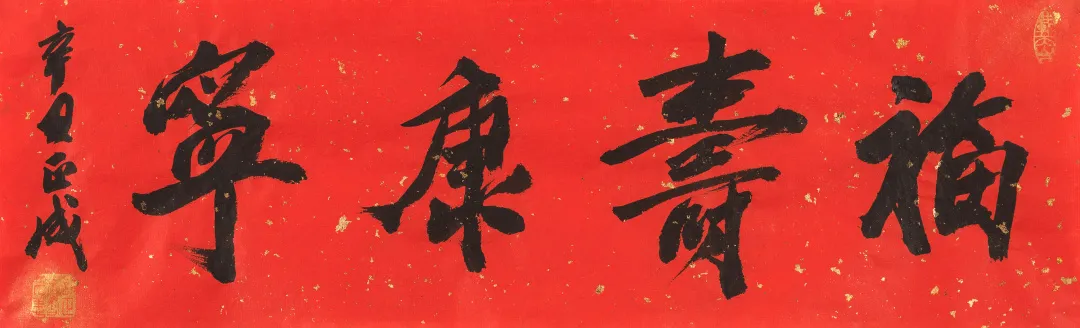 福壽康寧
辛丑正成